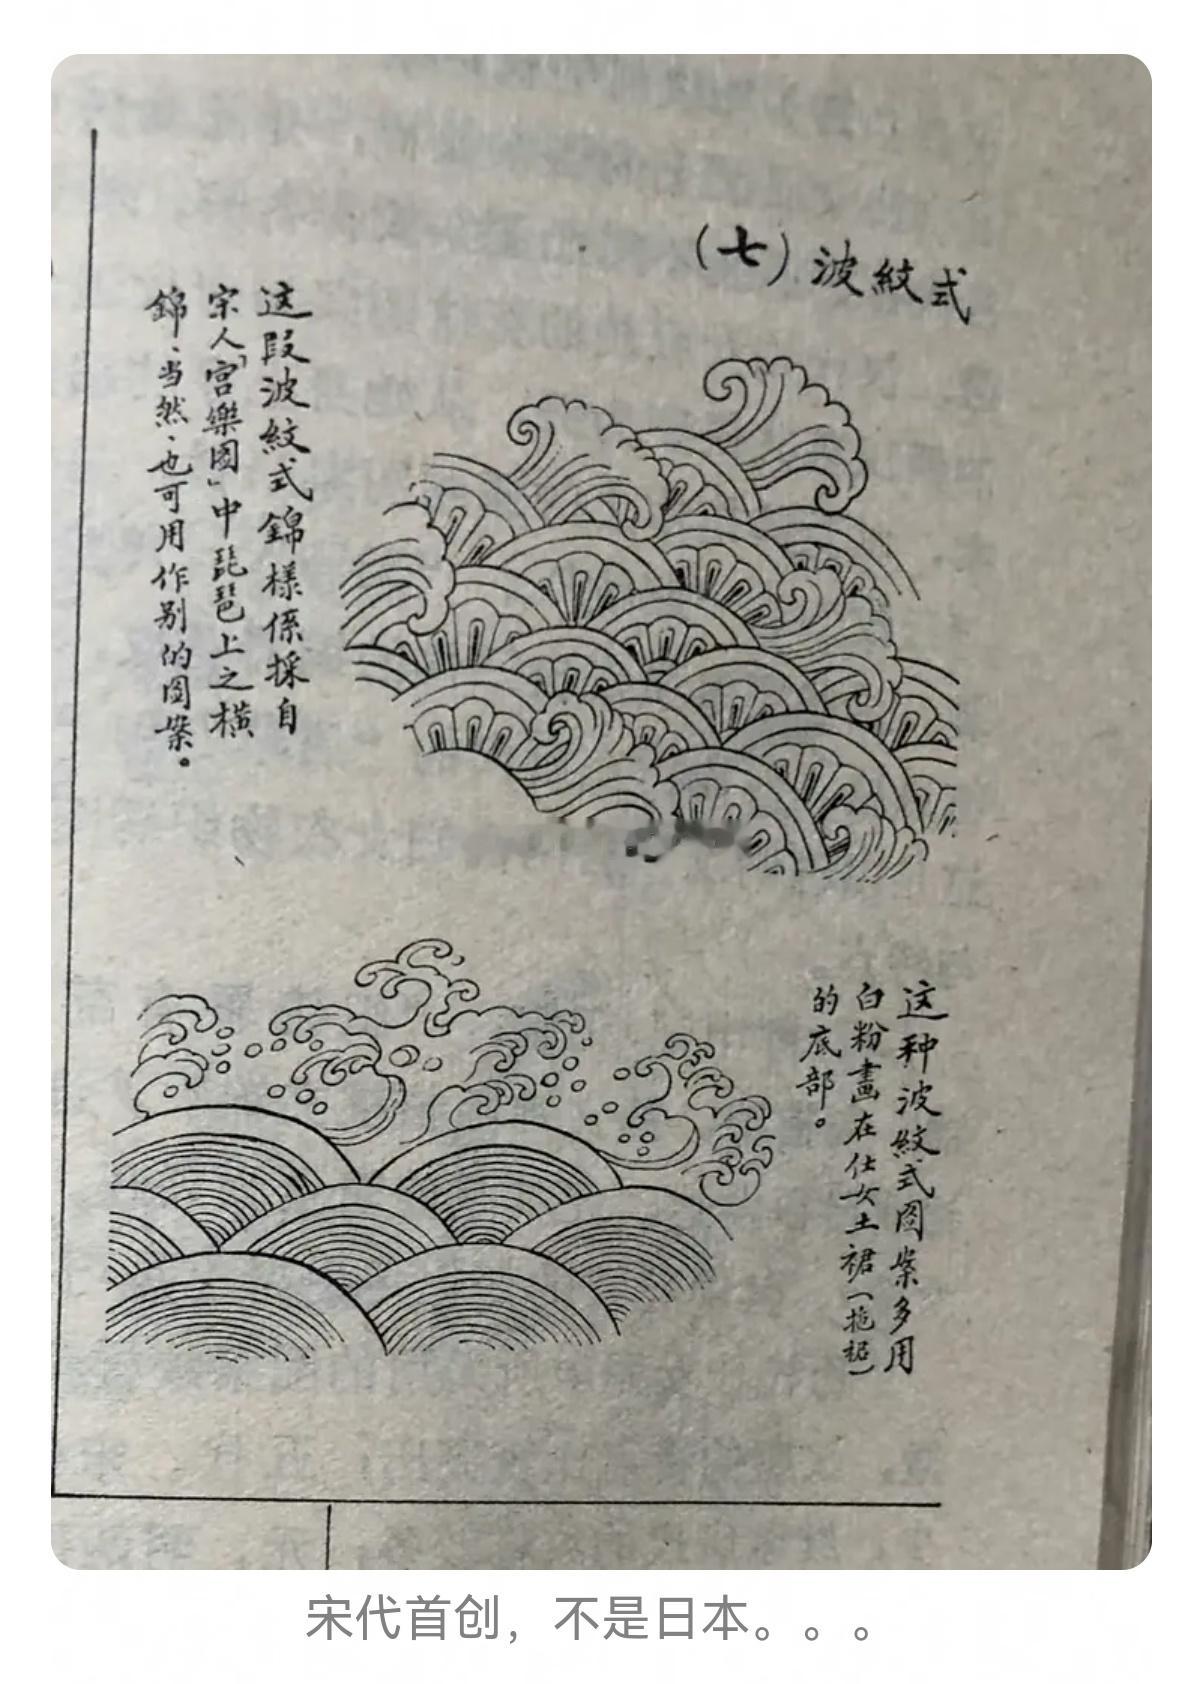 (七)波紋式
这段波紋式錦樣係採自
宗人「宫樂图」中琵琶上之横
錦、当然、也可用作别的图案。
这种波紋式图案多用
白粉畫在仕女土裙(拖裙)
的底部。
宋代首创，不是日本。。。